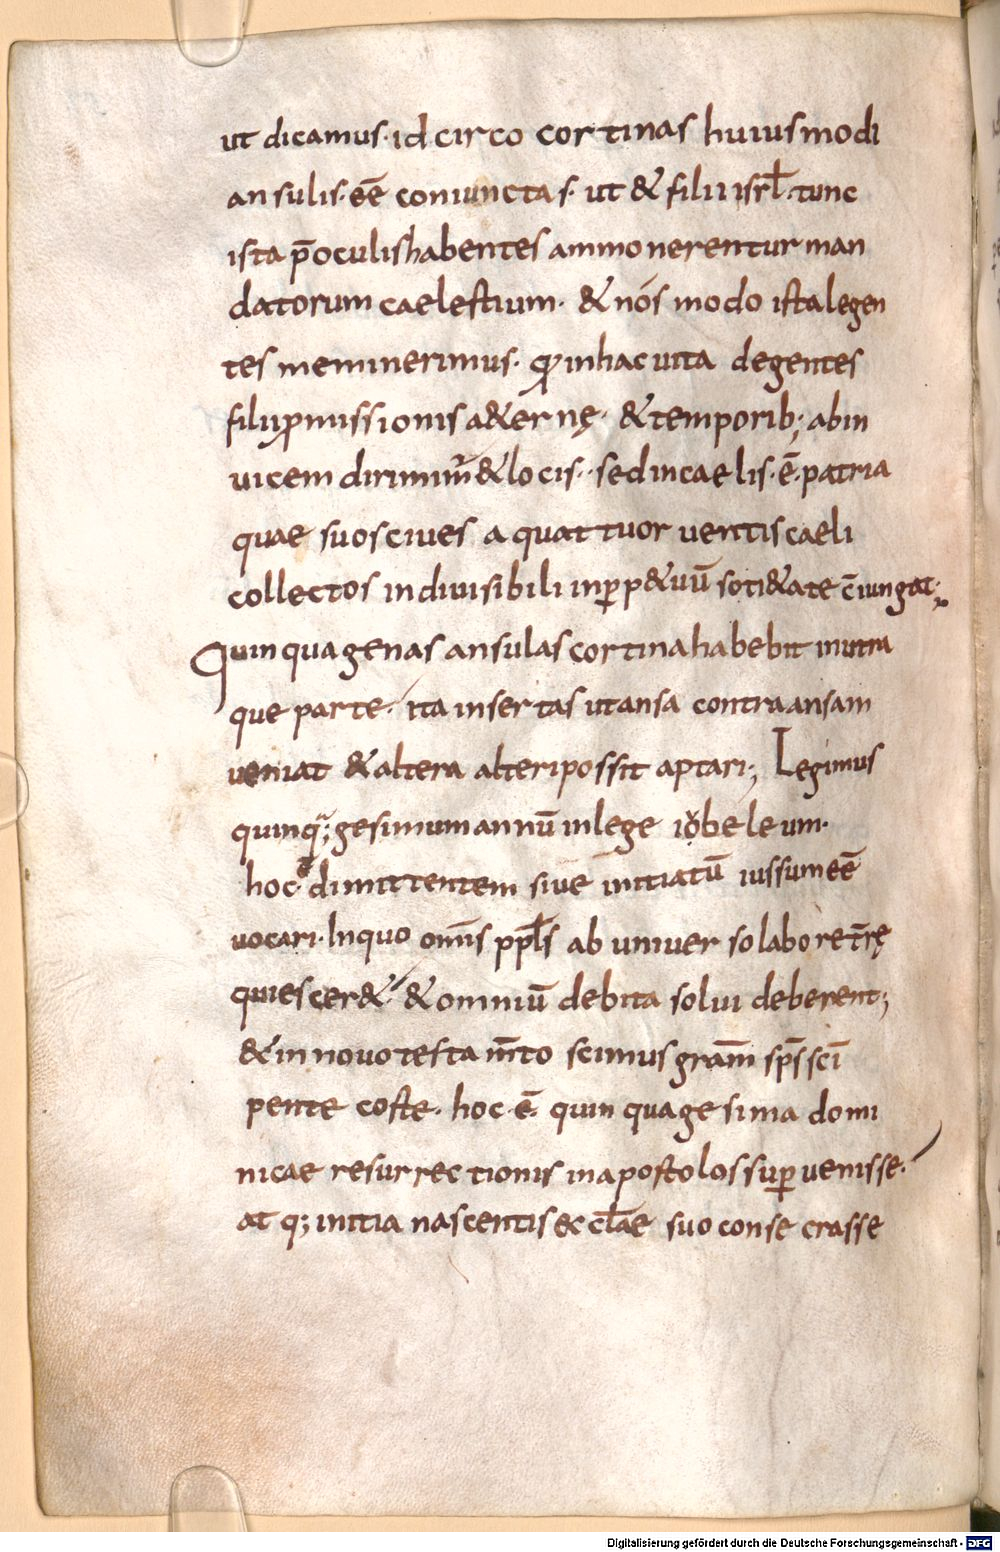 ut dicamus· idcirco cortinas huiusmodi
ansulis· eē coniunctas· ut & filii isrł· tunc
ista p̄oculis habentes ammonerentur man
datorum caelestium· & nós modo ista legen
tes meminerimus· ꝙ in hac uita degentes
filii ꝓmissionis aeternę· & temporib; abin
uicem dirimim̃ & locis· sed in caelis· ē· patria
quae suos ciues a quattuor uentis caeli
collectos indiuisibili in ꝑp&uū soti&ate c̄iungat;
Quinquagenas ansulas cortina habebit in utra
que parte· ita insertas ut ansa contra ansam
ueniat & altera alteri possit aptari; Legimus
quinq;gesimum annū in lege iobeleum·
hoc· ē dimittentem siue initiatū iussum eē
uocari· In quo omīs ppłs ab uniuerso labore tr̄ę
quiescer& & omniū debita solui deberent;
& in nouo testam̄to scimus gram̄ sp̄s sc̄i
pentecoste· hoc· ē· quinquagesima domi
nicae resurrectionis in apostolos suꝑuenisse·
atq; initia nascentis eccl̄ae suo consecrasse
Digitalisierung gefördert durch die Deutsche Forschungsgemeinschaft - DFG